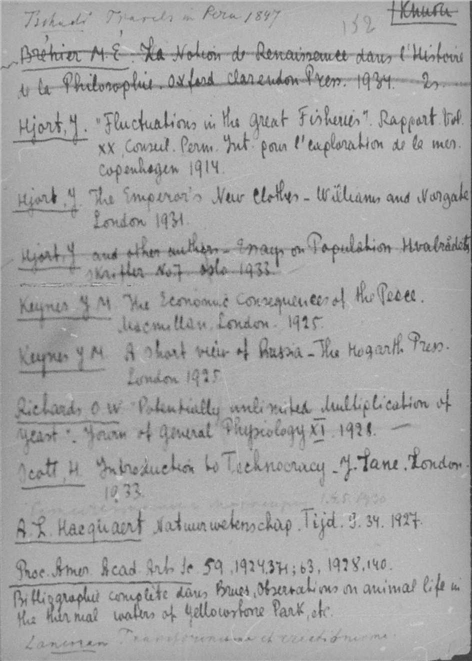 Tschudi Travels in Peru 1847
132
Bréhier M. É. La Notion de Renaissance dans l'Histoire
de la Philosophie. Oxford Clarendon Press. 1934. 2s.
Hjort, J. "Fluctuations in the great Fisheries". Rapport Vol.
XX, Conseil. Perm. Int. pour l'exploration de la mer.
Copenhagen 1914.
Hjort, J. The Emperor's New Clothes - Williams and Norgate
London 1931.
Hjort J and other authors - Essays on Population Hvalrådets
skrifter No 7 Oslo 1933
Keynes J M. The Economic Consequences of the Peace.
Macmillan. London. 1925.
Keynes J M. A short view of Russia - The Hogarth Press.
London 1925
Richards O W "Potentially unlimited multiplication of
yeast". Journ of General Physiology XI. 1928.
Scott, H. Introduction to Technocracy - J. Lane. London.
1933.
1930
A. L. Hacquaert Natuurwetenschap. Tijd. 9. 34. 1927.
Proc. Amer. Acad Arts Sc. 59, 1924, 371; 63, 1928, 140.
Bibliographie complète dans Brues, Observations on animal life in
the thermal waters of Yellowstone Park, etc.